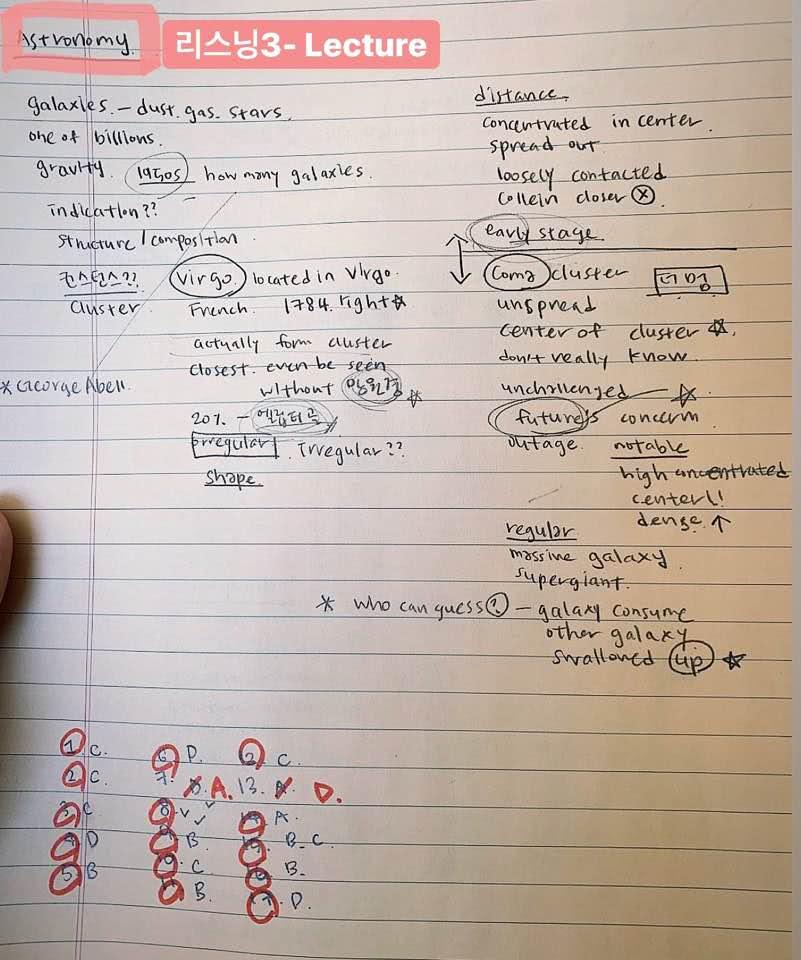 Astronomy.
리스닝3- Lecture
galaxies. - dust. gas. stars.
one of billions.
gravity. 1950s how many galaxies.
indication??
structure / composition.
컨스턴스??
cluster
* George Abell.
Virgo. located in Virgo.
French. 1784. right☆
actually form cluster
closest. even be seen
without 망원경 ☆
20% - 엘립티클
irregular. irregular??
shape.
distance.
concentrated in center.
spread out.
loosely contacted
collein closer ⓧ
early stage.
↕
Coma cluster 더 멈
unspread
center of cluster ☆.
don't really know.
unchallenged ☆
future's concern
outage. notable
high uncentrated
center!!
dense ↑
regular
massive galaxy.
supergiant.
* who can guess? - galaxy consume
other galaxy
swallowed up ☆
1 C.
2 C.
3 C
4 D
5 B
6 D.
7. A.
8. v ✓ ✓
9 B.
C
B.
C.
13. A. D.
A.
B_C.
B_
17 D.